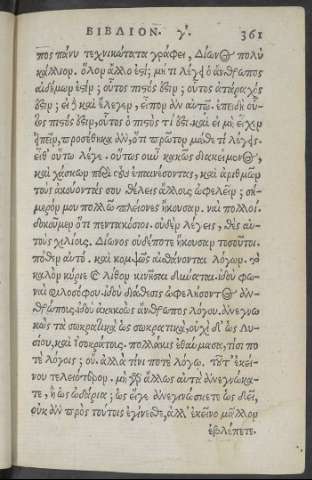 ΒΙΒΛΙΟΝ. γ'. 361
πος πάνυ τεχνικώτατα γράφει, Δίωνος πολὺ
κάλλιον. ὅλον ἄλλο ἐστί; μή τι λέγει ὁ ἄνθρωπος
αἰδήμων ἐστίν; οὗτος πιστός ἐστιν; οὗτος ἀτάραχός
ἐστιν; εἰ ᾖ καὶ ἔλεγεν, εἶπον ἂν αὐτῷ. ἐπειδὴ οὗ-
τος πιστός ἐστιν, οὗτος ὁ πιστὸς τί ἐστι καὶ εἰ μὴ εἶχεν
εἰπεῖν, προσέθηκα ἂν, ὅτι πρῶτον μάθε τί λέγεις
εἶθ' οὕτω λέγε. οὕτως οὖν κακῶς διακείμενος,
καὶ χάσκων περὶ τοὺς ἐπαινέσοντας, καὶ ἀριθμῶν
τοὺς ἀκούοντάς σου θέλεις ἄλλους ὠφελεῖν; σή-
μερόν μου πολλῷ πλείονες ἤκουσαν. ναὶ πολλοί.
δοκοῦμεν ὅτι πεντακόσιοι. οὐδὲν λέγεις, θὲς αὐ-
τοὺς χιλίους. Δίωνος οὐδέποτε ἤκουσαν τοσοῦτοι.
πόθεν αὐτῷ. καὶ κομψῶς αἰσθάνονται λόγων. τὸ
καλὸν κύριε καὶ λίθον κινῆσαι δύναται. ἰδοὺ φω-
ναὶ φιλοσόφου. ἰδοὺ διάθεσις ὠφελήσοντος ἀν-
θρώπους. ἰδοὺ ἀκηκοὼς ἄνθρωπος λόγου. ἀνεγνω
κὼς τὰ σωκρατικὰ ὡς σωκρατικά, οὐχὶ δ' ὡς Λυ-
σίου, καὶ ἰσοκράτους. πολλάκις ἐθαύμασα, τίσι πο
τὲ λόγοις; οὔ. ἀλλὰ τίνι ποτὲ λόγῳ. τοῦτ' ἐκεί-
νου τελειότερον. μὴ γὰρ ἄλλως αὐτὰ ἀνεγνώκα-
τε, ἢ ὡς ᾠδάρια; ὡς εἴγε ἀνεγινώσκετε ὡς δεῖ,
οὐκ ἂν πρὸς τούτοις ἐγίνεσθε, ἀλλ' ἐκεῖνο μᾶλλον
ἐβλέπετε.